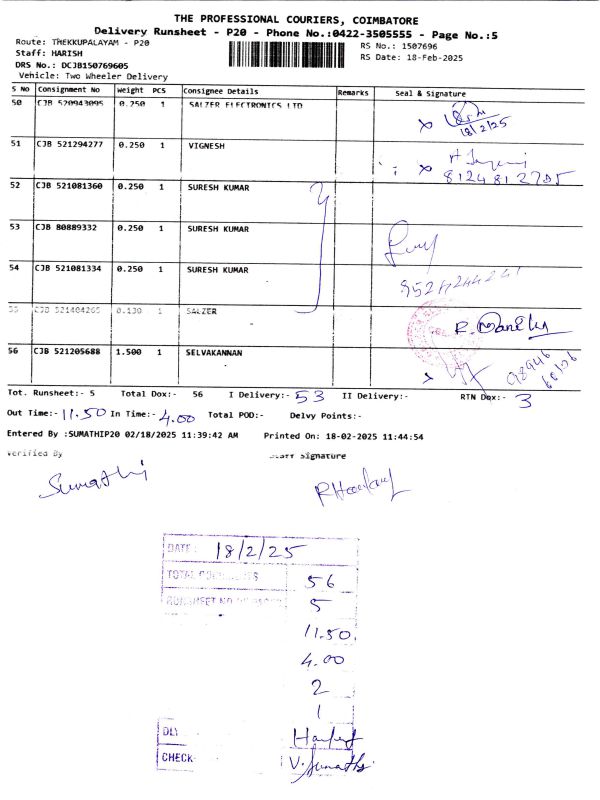 THE PROFESSIONAL COURIERS, COIMBATORE
Delivery Runsheet - P20 - Phone No.:0422-3505555 - Page No.:5
Route: THEKKUPALAYAM - P20
RS No.: 1507696
Staff: HARISH
RS Date: 18-Feb-2025
DRS No.: DCJB150769605
Vehicle: Two Wheeler Delivery
S No Consignment No Weight PCS Consignee Details Remarks Seal & Signature
50 CJB 520943095 0.250 1 SALZER ELECTRONICS LTD
18/2/25
51 CJB 521294277 0.250 1 VIGNESH
8124812705
52 CJB 521081360 0.250 1 SURESH KUMAR
53 CJB 80889332 0.250 1 SURESH KUMAR
54 CJB 521081334 0.250 1 SURESH KUMAR
55 CJB 521404265 0.130 1 SALZER
56 CJB 521205688 1.500 1 SELVAKANNAN
Tot. Runsheet:- 5 Total Dox:- 56 I Delivery:- 53 II Delivery:- RTN Dox:- 3
Out Time:- 11.50 In Time:- 4.00 Total POD:- Delvy Points:-
Entered By :SUMATHIP20 02/18/2025 11:39:42 AM Printed On: 18-02-2025 11:44:54
Verified By Staff Signature
Sumathi
DATE: 18/2/25
TOTAL 56
RUNSHEET NO 5
11.50.
4.00
2
1
DLY
CHECK V. Sumathi